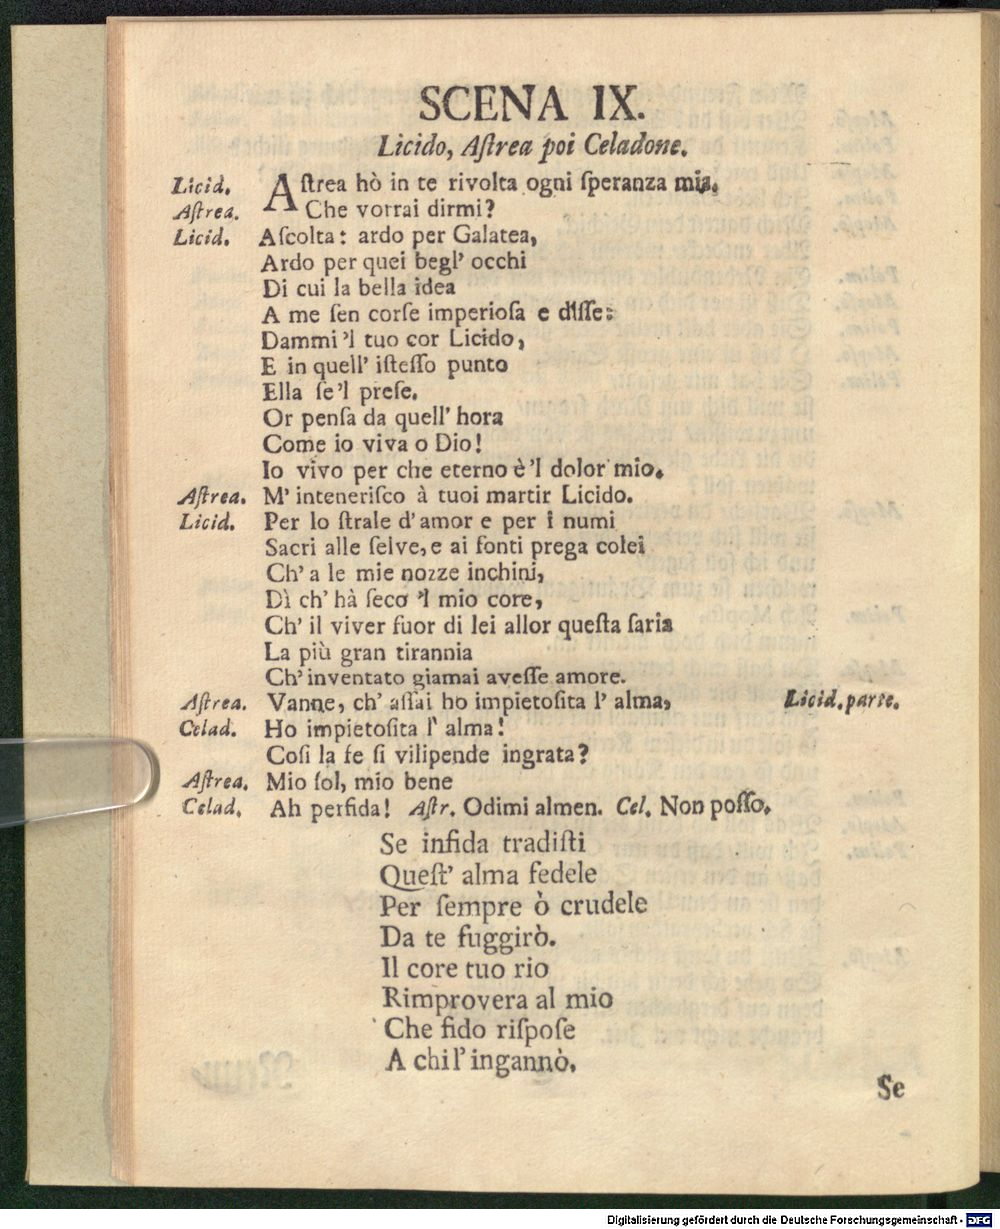 SCENA IX.
Licido, Aſtrea poi Celadone.
Licid. Aſtrea hò in te rivolta ogni ſperanza mia.
Aſtrea. Che vorrai dirmi?
Licid. Aſcolta: ardo per Galatea,
Ardo per quei begl' occhi
Di cui la bella idea
A me ſen corſe imperioſa e diſſe:
Dammi 'l tuo cor Licido,
E in quell' iſteſſo punto
Ella ſe 'l preſe.
Or penſa da quell' hora
Come io viva o Dio!
Io vivo per che eterno è 'l dolor mio.
Aſtrea. M' inteneriſco à tuoi martir Licido.
Licid. Per lo ſtrale d' amor e per i numi
Sacri alle ſelve, e ai fonti prega colei
Ch' a le mie nozze inchini,
Dì ch' hà ſeco 'l mio core,
Ch' il viver fuor di lei allor queſta ſaria
La più gran tirannia
Ch' inventato giamai aveſſe amore.
Aſtrea. Vanne, ch' aſſai ho impietoſita l' alma, Licid. parte.
Celad. Ho impietoſita l' alma!
Coſi la fe ſi vilipende ingrata?
Aſtrea. Mio ſol, mio bene
Celad. Ah perfida! Aſtr. Odimi almen. Cel. Non poſſo.
Se infida tradiſti
Queſt' alma fedele
Per ſempre ò crudele
Da te fuggirò.
Il core tuo rio
Rimprovera al mio
Che fido riſpoſe
A chi l' ingannò.
Se
Digitalisierung gefördert durch die Deutsche Forschungsgemeinschaft - DFG